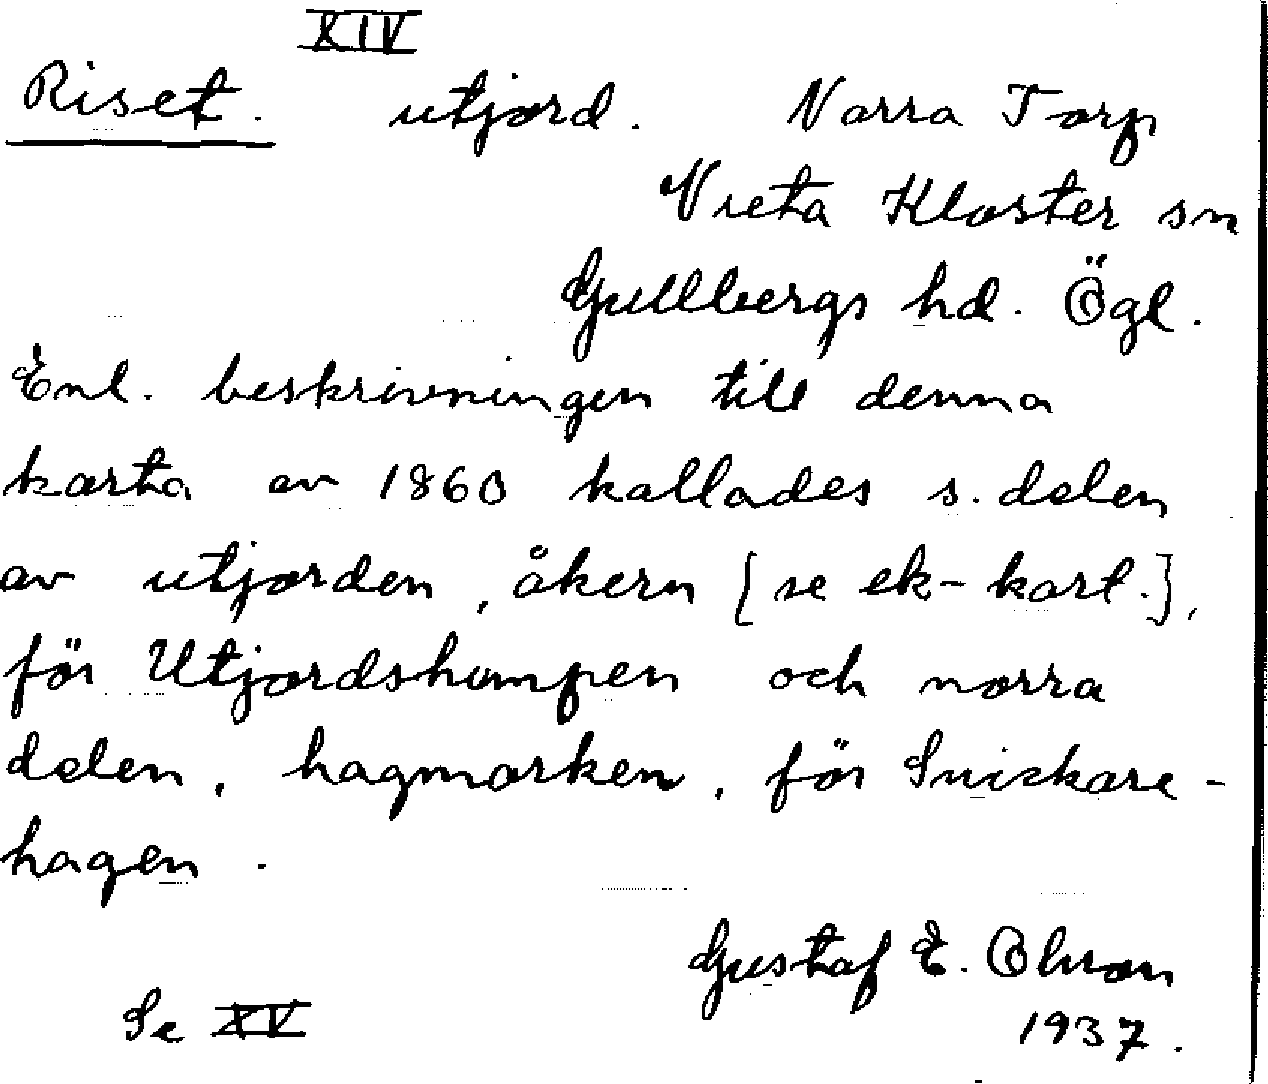 XIV
Riset. utjord. Norra Torp
Vreta Kloster sn
Gullbergs hd. Ögl.
Enl. beskrivningen till denna
karta av 1860 kallades s. delen
av utjorden, åkern [se ek-kart.],
för Utjordshumpen och norra
delen, hagmarken, för Snickare-
hagen.
Gustaf E. Olsson
Se XV 1937.